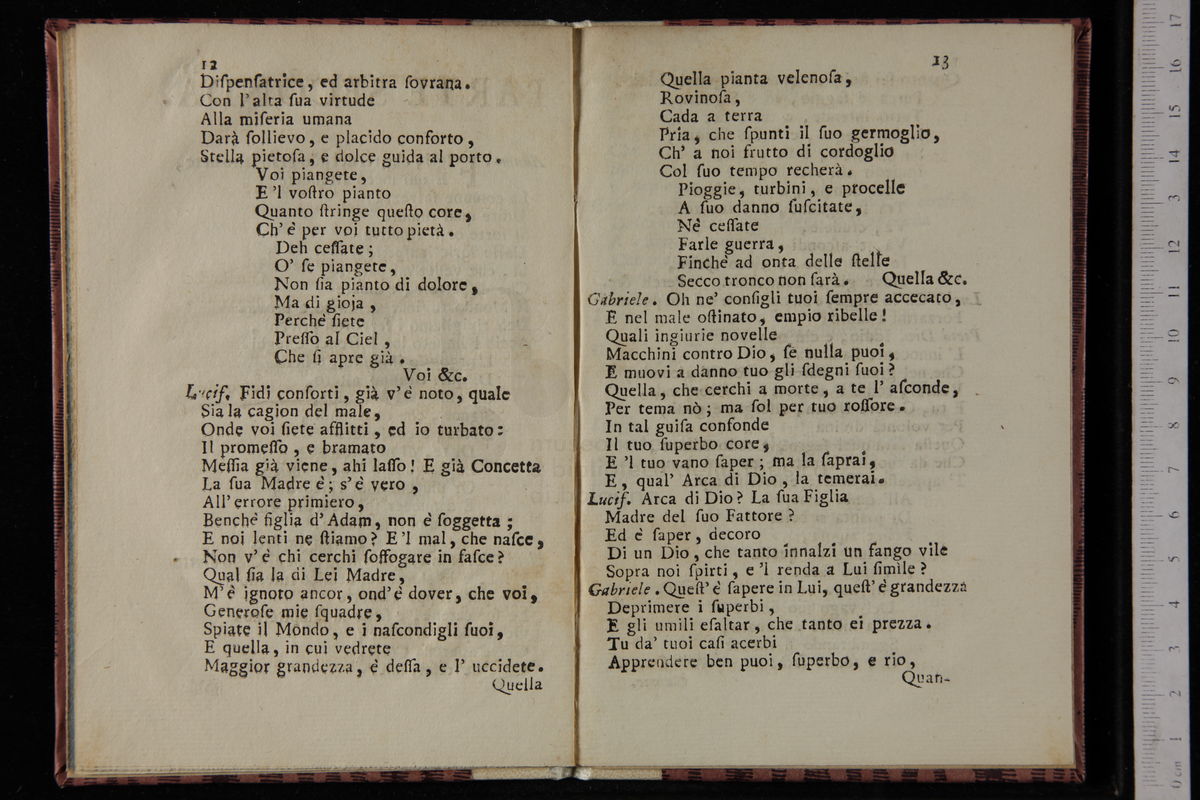 12
Diſpenſatrice, ed arbitra ſovrana.
Con l'alta ſua virtude
Alla miſeria umana
Darà ſollievo, e placido conforto,
Stella pietoſa, e dolce guida al porto.
Voi piangete,
E 'l voſtro pianto
Quanto ſtringe queſto core,
Ch' è per voi tutto pietà.
Deh ceſſate;
O' ſe piangete,
Non ſia pianto di dolore,
Ma di gioja,
Perchè ſiete
Preſſo al Ciel,
Che ſi apre già.
Voi &c.
Lucif. Fidi conforti, già v' è noto, quale
Sia la cagion del male,
Onde voi ſiete afflitti, ed io turbato:
Il promeſſo, e bramato
Meſſia già viene, ahi laſſo! E già Concetta
La ſua Madre è; s' è vero,
All' errore primiero,
Benchè figlia d' Adam, non è ſoggetta;
E noi lenti ne ſtiamo? E 'l mal, che naſce,
Non v' è chi cerchi ſoffogare in faſce?
Qual ſia la di Lei Madre,
M' è ignoto ancor, ond' è dover, che voi,
Generoſe mie ſquadre,
Spiate il Mondo, e i naſcondigli ſuoi,
E quella, in cui vedrete
Maggior grandezza, è deſſa, e l' uccidete.
Quella
13
Quella pianta velenoſa,
Rovinoſa,
Cada a terra
Pria, che ſpunti il ſuo germoglio,
Ch' a noi frutto di cordoglio
Col ſuo tempo recherà.
Pioggie, turbini, e procelle
A ſuo danno ſuſcitate,
Nè ceſſate
Farle guerra,
Finchè ad onta delle ſtelle
Secco tronco non ſarà. Quella &c.
Gabriele. Oh ne' conſigli tuoi ſempre accecato,
E nel male oſtinato, empio ribelle!
Quali ingiurie novelle
Macchini contro Dio, ſe nulla puoi,
E muovi a danno tuo gli ſdegni ſuoi?
Quella, che cerchi a morte, a te l' aſconde,
Per tema nò; ma ſol per tuo roſſore.
In tal guiſa confonde
Il tuo ſuperbo core,
E 'l tuo vano ſaper; ma la ſaprai,
E, qual' Arca di Dio, la temerai.
Lucif. Arca di Dio? La ſua Figlia
Madre del ſuo Fattore?
Ed è ſaper, decoro
Di un Dio, che tanto innalzi un fango vile
Sopra noi ſpirti, e 'l renda a Lui ſimile?
Gabriele. Queſt' è ſapere in Lui, queſt' è grandezza
Deprimere i ſuperbi,
E gli umili eſaltar, che tanto ei prezza.
Tu da' tuoi caſi acerbi
Apprendere ben puoi, ſuperbo, e rio,
Quan-